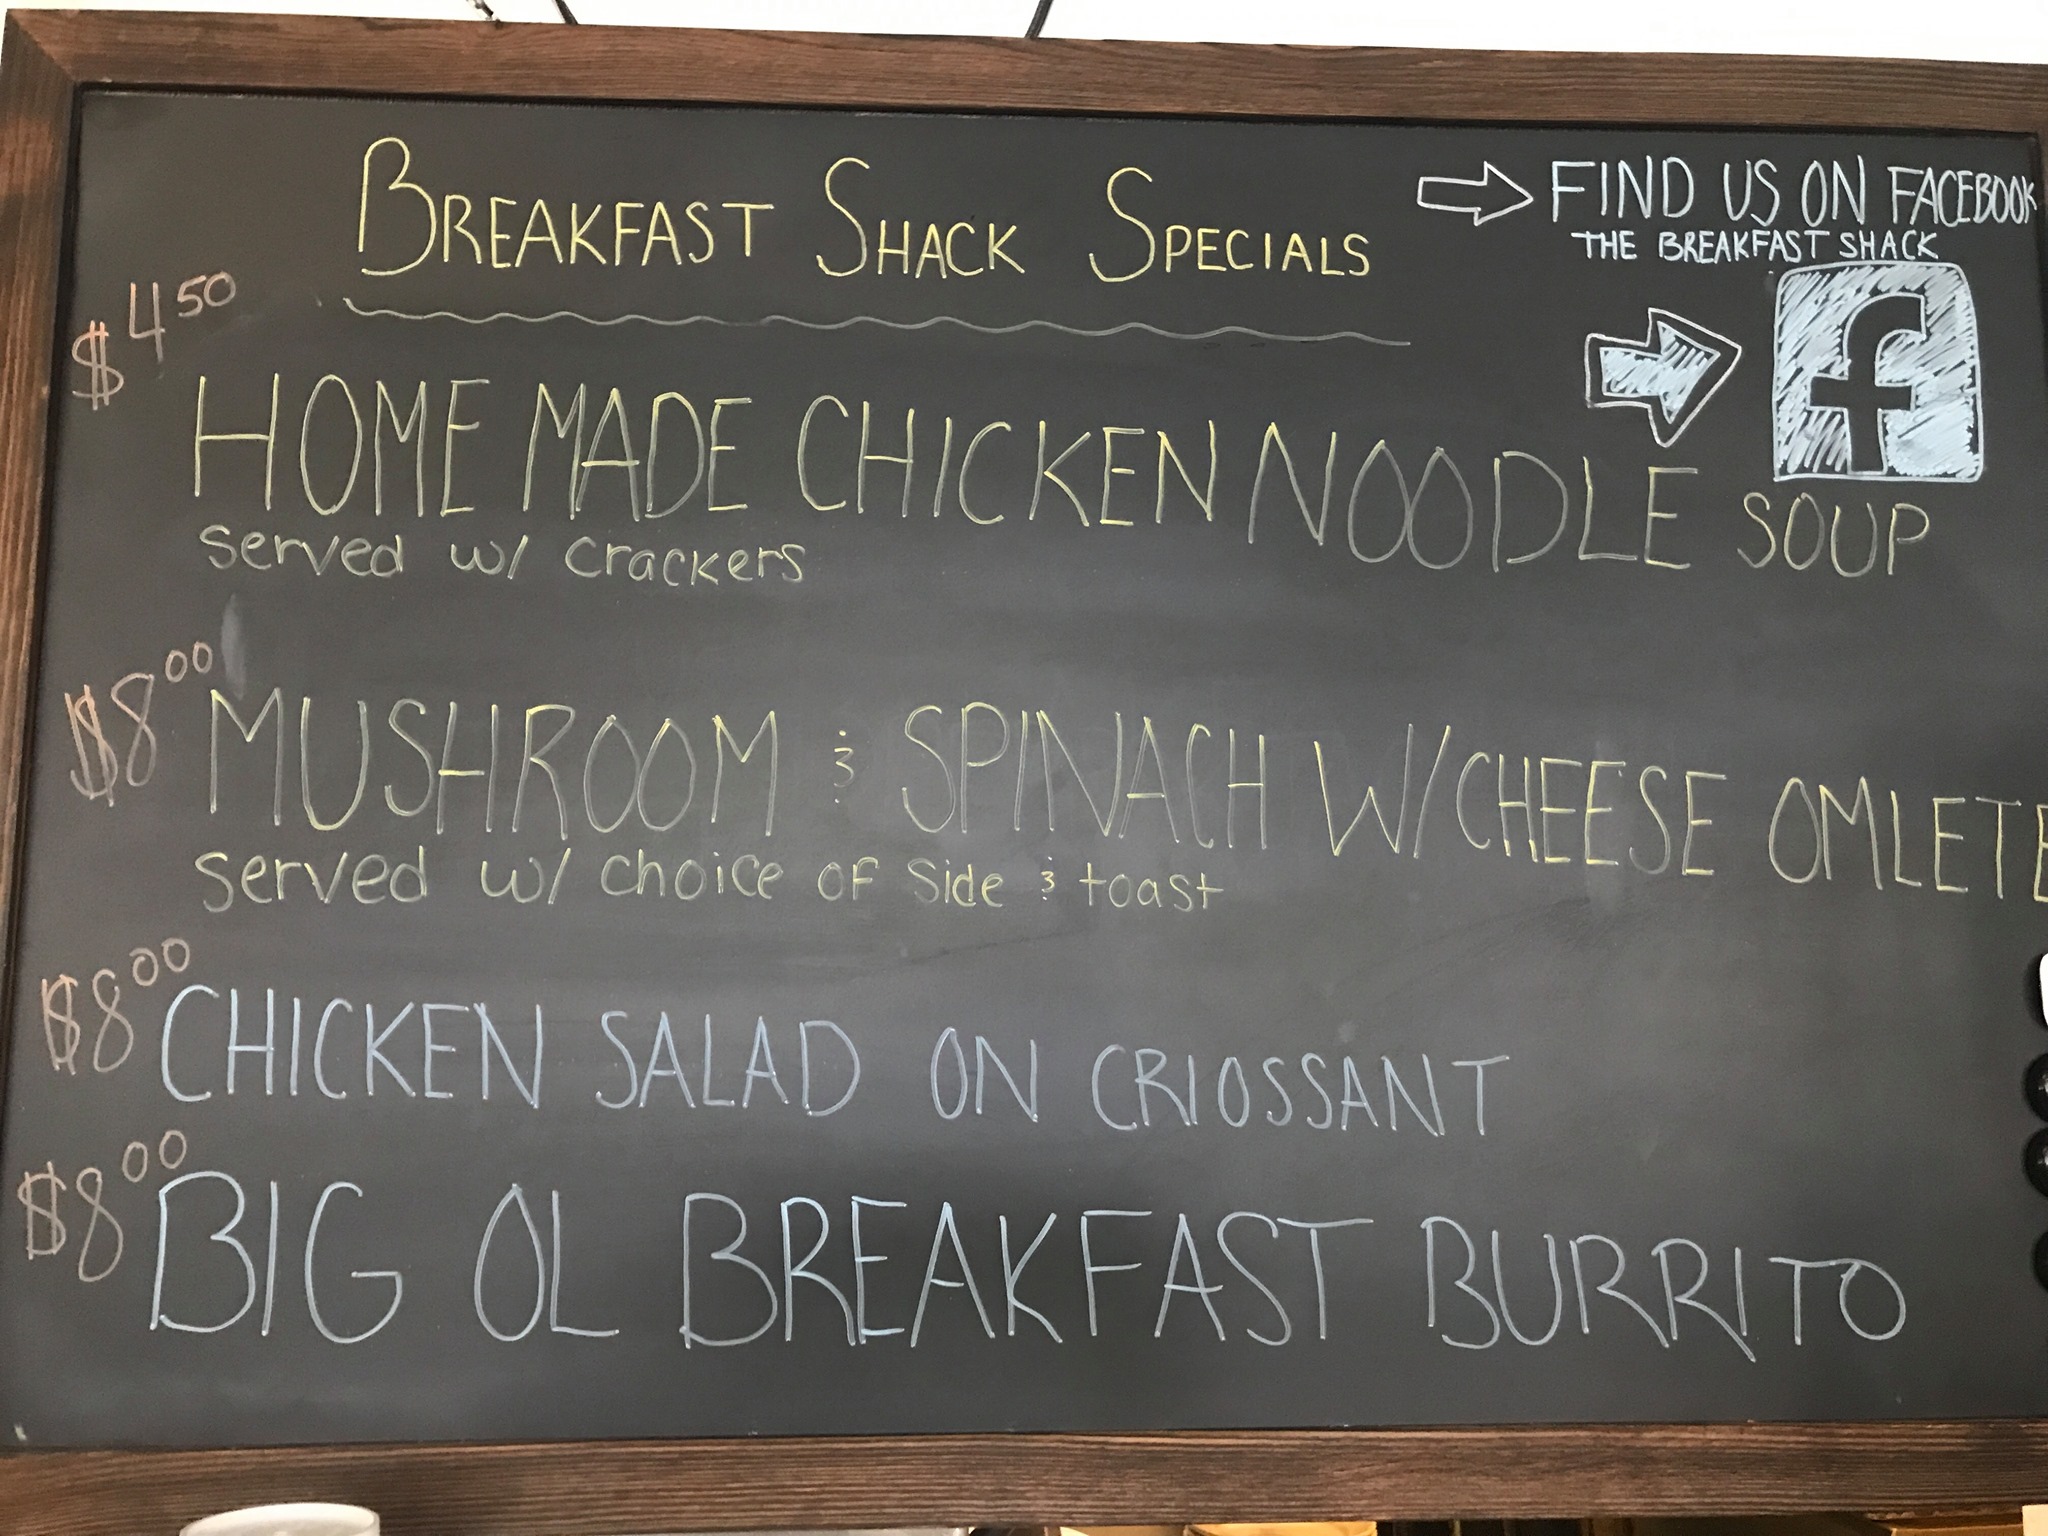 BREAKFAST SHACK SPECIALS
→ FIND US ON FACEBOOK
THE BREAKFAST SHACK
f
$4.50
HOME MADE CHICKEN NOODLE SOUP
served w/ crackers
$8.00
MUSHROOM & SPINACH W/CHEESE OMLETE
served w/ choice of side & toast
$8.00
CHICKEN SALAD ON CRIOSSANT
$8.00
BIG OL BREAKFAST BURRITO